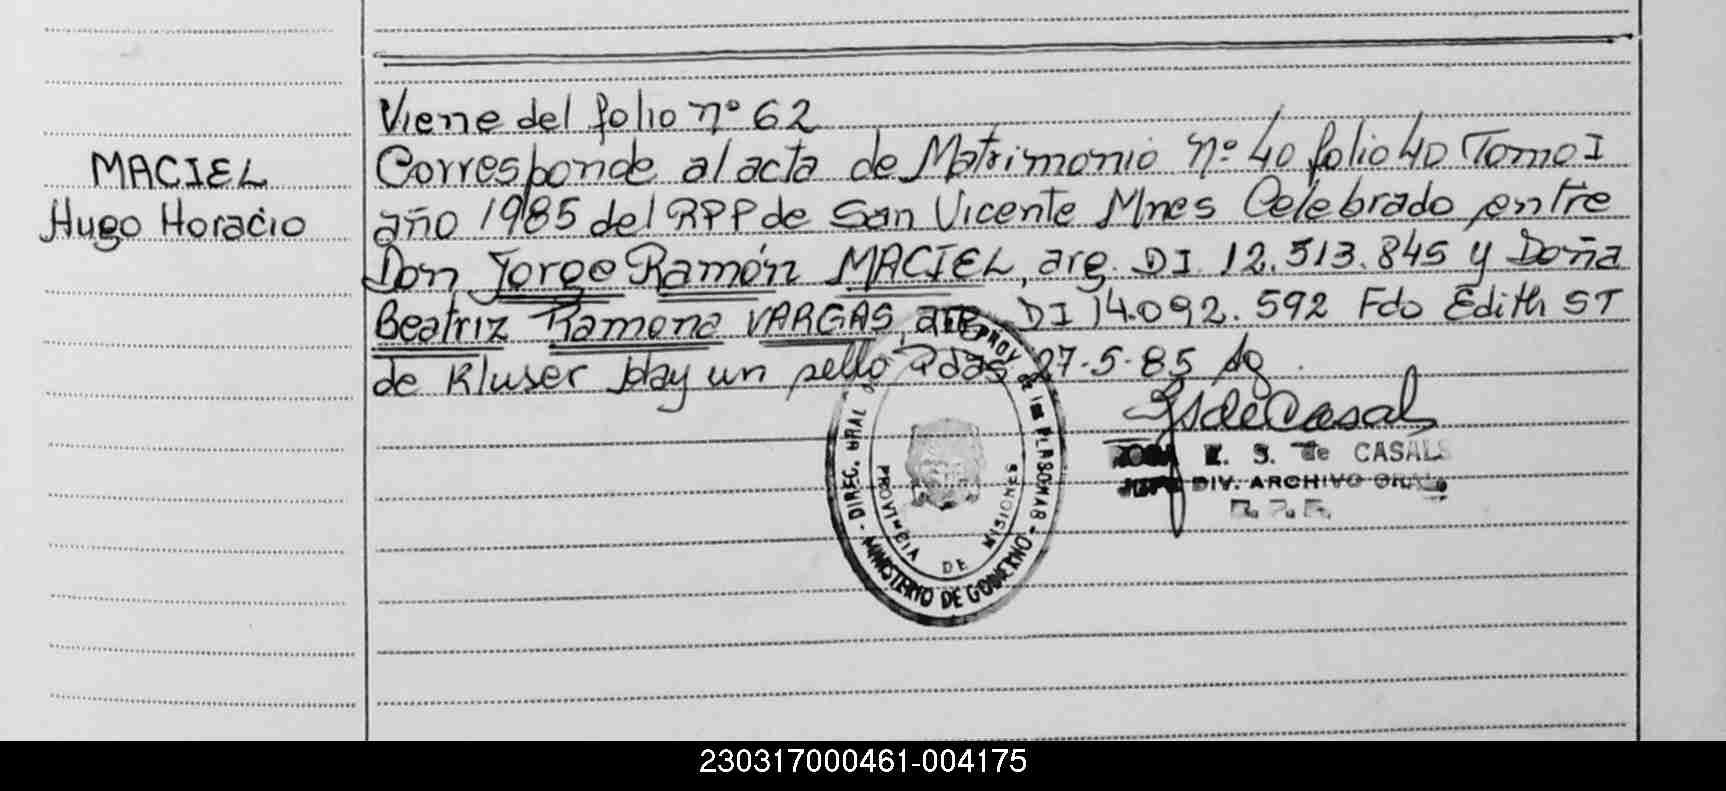 Viene del folio nº 62
MACIEL
Hugo Horacio
Corresponde al acta de Matrimonio nº 40 folio 40 Tomo I
año 1985 del RPP de San Vicente Mnes Celebrado entre
Don Jorge Ramón MACIEL, arg. DI 12.513.845 y Doña
Beatriz Ramona VARGAS, arg. DI 14.092.592 Fdo Edith ST
de Kluser Hay un sello Pdas 27-5-85
E. S. de CASALS
DIV. ARCHIVO GRAL
DIREC. GRAL
PROV. de las PERSONAS
MINISTERIO DE GOBIERNO
PROVINCIA DE MISIONES
230317000461-004175